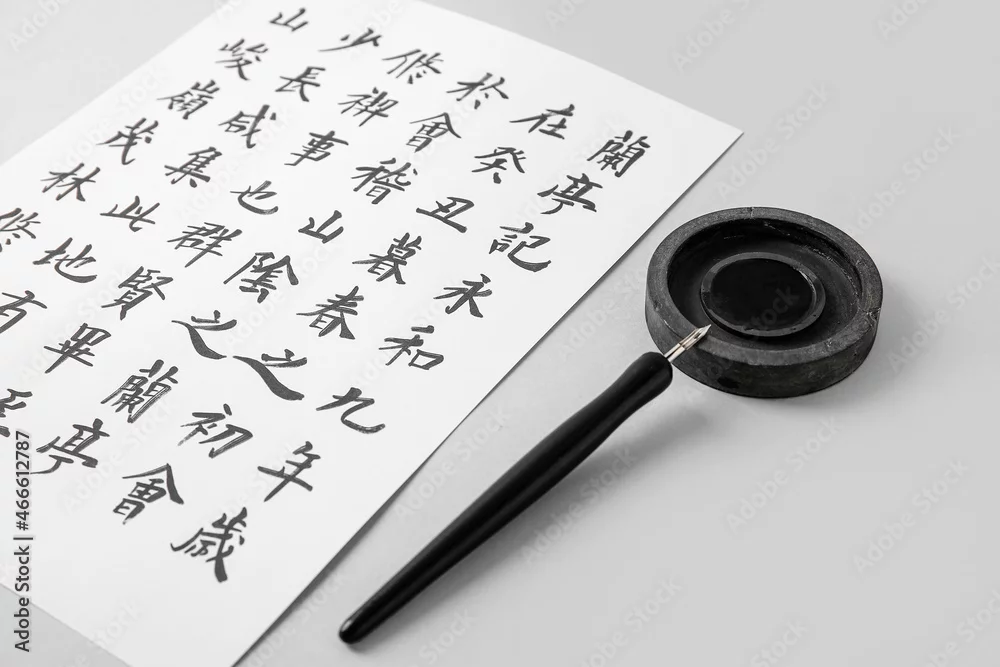 蘭亭記永和九年歲
在癸丑暮春之初會
於會稽山陰之蘭亭
修禊事也群賢畢
少長咸集此地有
山峻嶺茂林修
Adobe Stock | #466612787